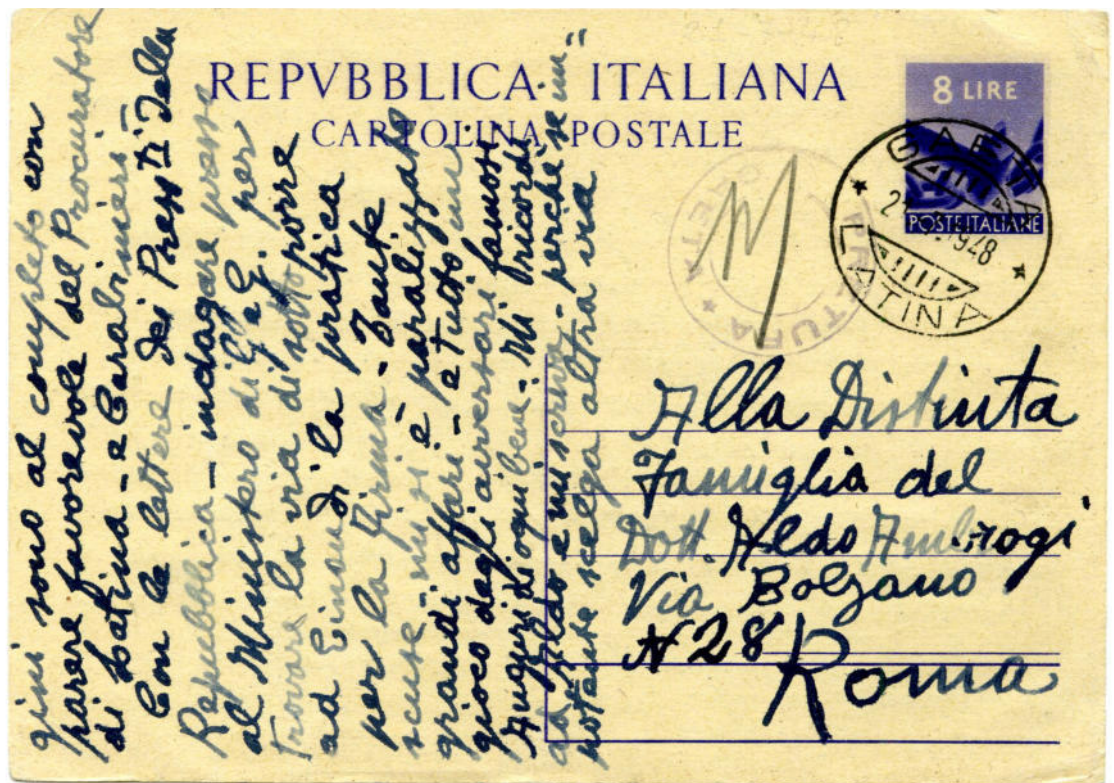 REPVBBLICA ITALIANA
CARTOLINA POSTALE
8 LIRE
POSTE ITALIANE
GAETA
1948
LATINA
PRETURA
GAETA
Alla Distinta
Famiglia del
Dott. Aldo Ambrogi
Via Bolzano
N 28
Roma
gini sono al completo con
parere favorevole del Procuratore
di Latina - e Carabinieri -
Con le lettere dei Presti della
Repubblica - indagare presso
al Ministero di G e G. per
trovare la via di sottoporre
ad Einaudi la pratica
per la firma - Tante
scuse - mi si è paralizzato
grandi affari - e tutto
gioco degli avversari famosi
Auguri di ogni bene - Mi ricordi
ad Aldo e mi scriva - perché se un"
potente scelga altra via